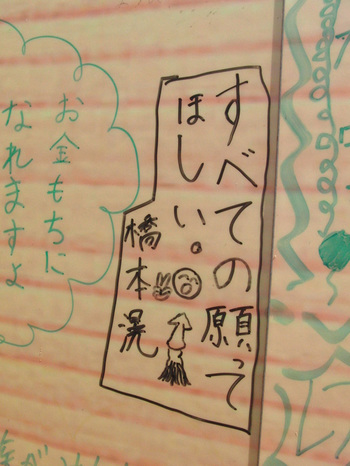 すべての願って
ほしい。
橋本滉
お金もちに
なれますよ